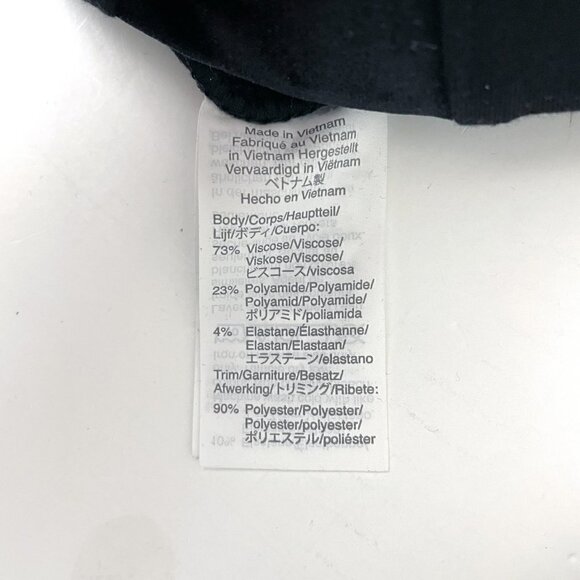 Made in Vietnam
Fabriqué au Vietnam
in Vietnam Hergestellt
Vervaardigd in Viëtnam
ベトナム製
Hecho en Vietnam
Body/Corps/Hauptteil/
Lijf/ボディ/Cuerpo:
73% Viscose/Viscose/
Viskose/Viscose/
ビスコース/viscosa
23% Polyamide/Polyamide/
Polyamid/Polyamide/
ポリアミド/poliamida
4% Elastane/Élasthanne/
Elastan/Elastaan/
エラステーン/elastano
Trim/Garniture/Besatz/
Afwerking/トリミング/Ribete:
90% Polyester/Polyester/
Polyester/polyester/
ポリエステル/poliéster